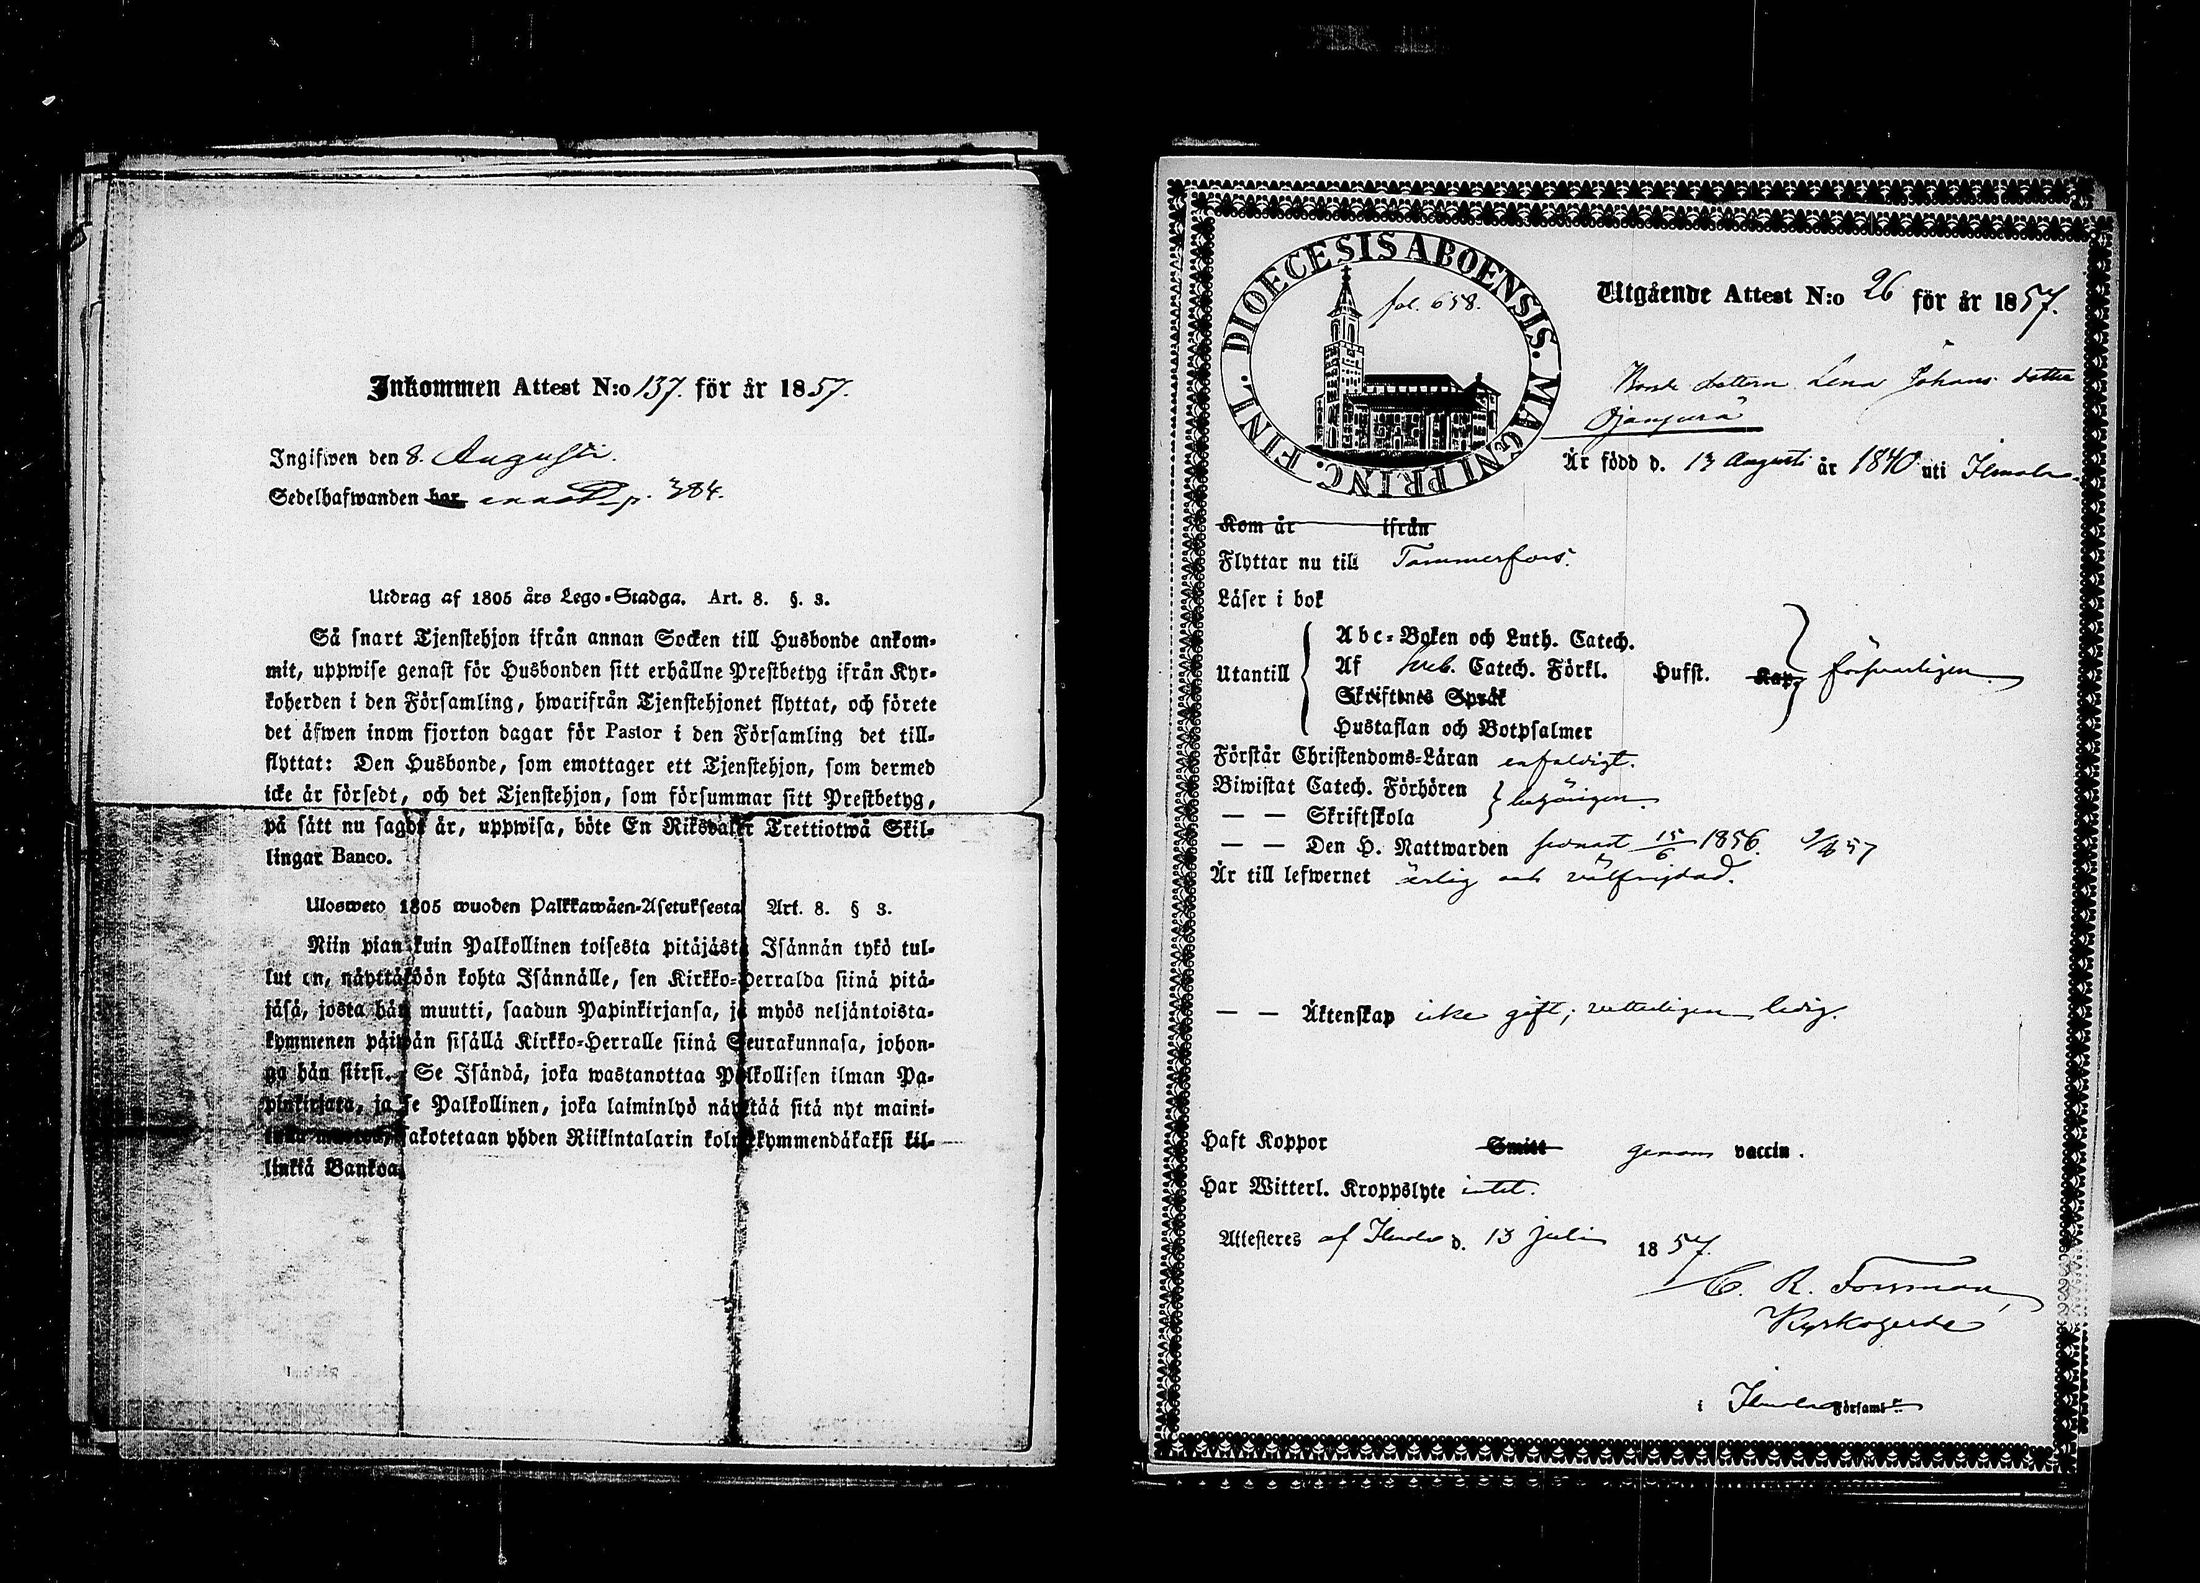 Inkommen Attest N:o 137. för år 1857.
Ingifwen den 8. Augusti.
Sedelhafwanden har p. 384.
Utdrag af 1805 års Lego-Stadga. Art. 8. §. 3.
Så snart Tjenstehjon ifrån annan Socken till Husbonde ankom-
mit, uppwise genast för Husbonden sitt erhållne Prestbetyg ifrån Kyr-
koherden i den Församling, hwarifrån Tjenstehjonet flyttat, och förete
det äfwen inom fjorton dagar för Pastor i den Församling det till-
flyttat: Den Husbonde, som emottager ett Tjenstehjon, som dermed
icke är försedt, och det Tjenstehjon, som försummar sitt Prestbetyg,
på sätt nu sagdt är, uppwisa, böte En Riksdaler Trettiotwå Skil-
lingar Banco.
Ulosweto 1805 wuoden Palkkawäen-Asetuksesta Art. 8. § 3.
Niin pian kuin Palkollinen toisesta pitäjästä Isännän tykö tul-
lut on, näyttäköön kohta Isännälle, sen Kirkko-Herralda siinä pitä-
jäsä, josta hän muutti, saadun Papinkirjansa, ja myös neljäntoista-
kymmenen päiwän sisällä Kirkko-Herralle siinä Seurakunnasa, johon-
ga hän siirsi. Se Isändä, joka wastanottaa Palkollisen ilman Pa-
pinkirjata, ja se Palkollinen, joka laiminlyö näyttää sitä nyt maini-
sakotetaan yhden Riikintalarin kolmekymmendäkaksi kil-
linkiä Bankoa.
DIOECESIS ABOENSIS. MAGNI PRINC. FINL.
fol. 658.
Utgående Attest N:o 26 för år 1857.
Bonde dottern Lena Johans dotter
Är född d. 13 Augusti år 1840 uti Ilmola.
Kom år ifrån
Flyttar nu till Tammerfors.
Läser i bok
Abc-Boken och Luth. Catech.
Utantill Af Sveb. Catech. Förkl. Hufst. Kap. försvarligen
Skriftenes Språk
Hustaflan och Botpsalmer
Förstår Christendoms-Läran enfaldigt.
Biwistat Catech. Förhören
— — Skriftskola
— — Den H. Nattwarden senast 15/6 1856.
Är till lefwernet ärlig och välfrejdad.
— — Äktenskap icke gift; vetterligen ledig.
Haft Koppor Smitt genom vaccin.
Har Witterl. Kroppslyte intet.
Attesteres af Ilmola d. 13 Juli 1857.
C. R. Forsman,
Kyrkoherde
i Ilmola Församl: